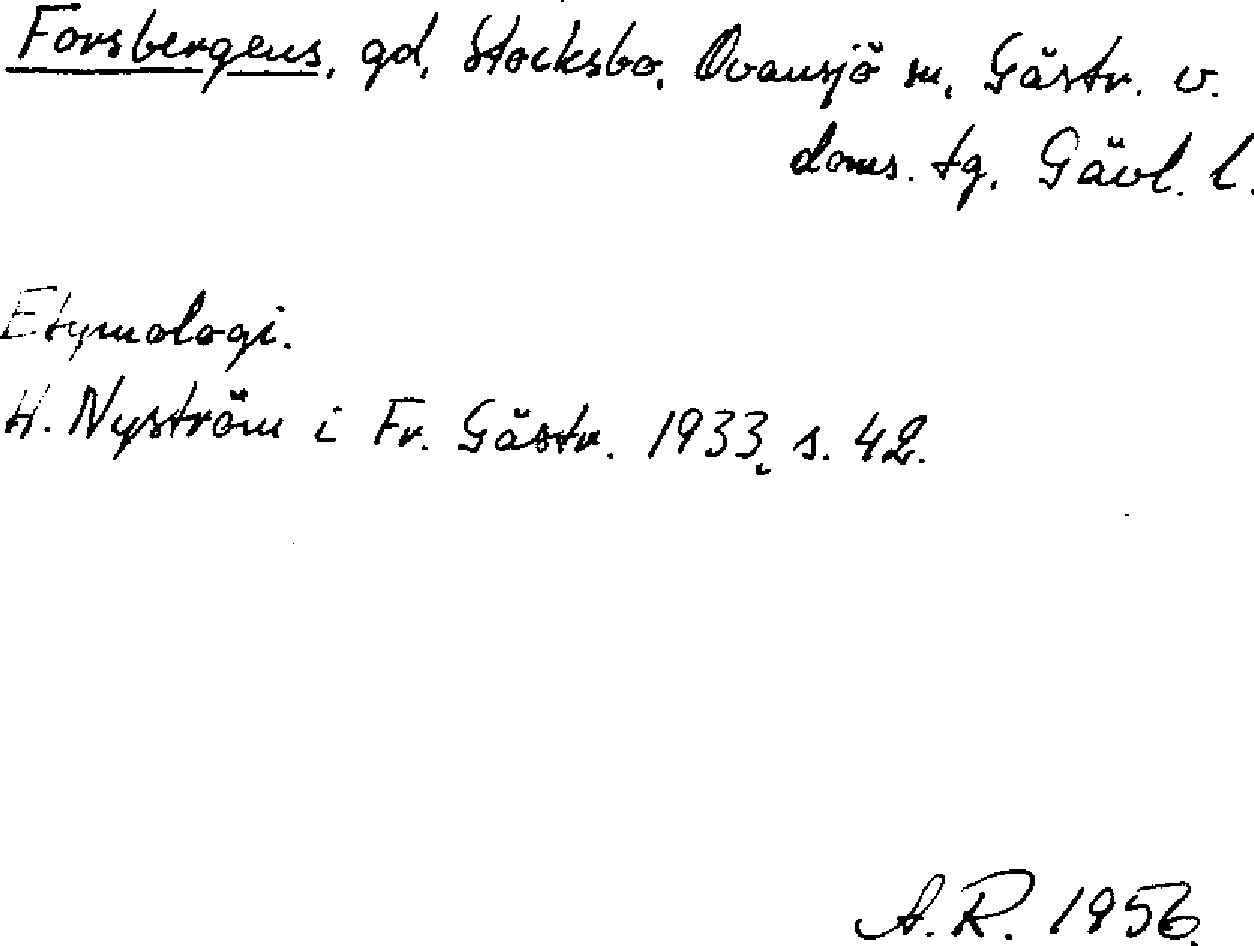 Forsbergens, gd, Stocksbo, Ovansjö sn, Gästr. v.
doms. tg, Gävl. l.
Etymologi.
H. Nyström i Fr. Gästr. 1933, s. 42.
A. R. 1956.